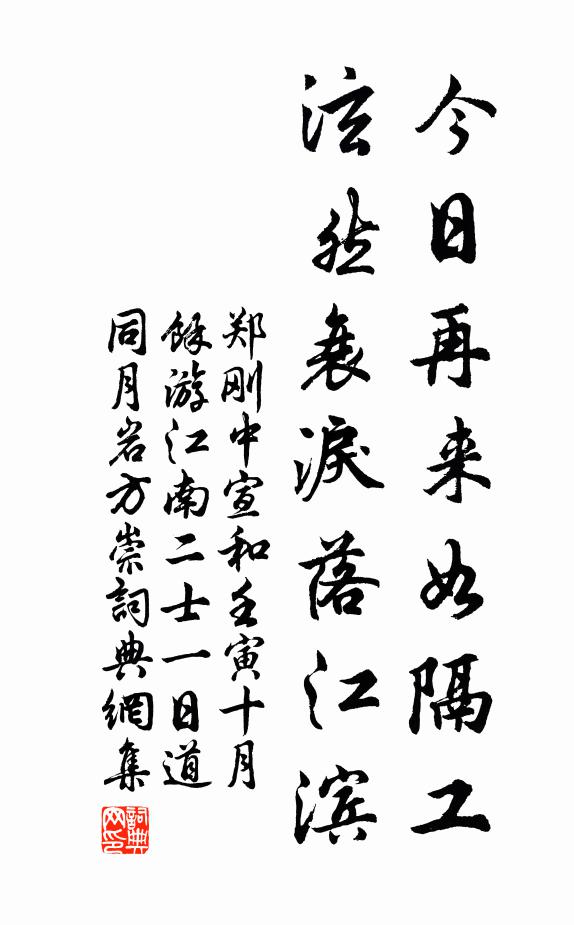 今日再来如隔工
泫然衰淚落江滨
郑刚中宣和壬寅十月
餘游江南二士一日道
同月岩方崇詞典網集
詞典
网印